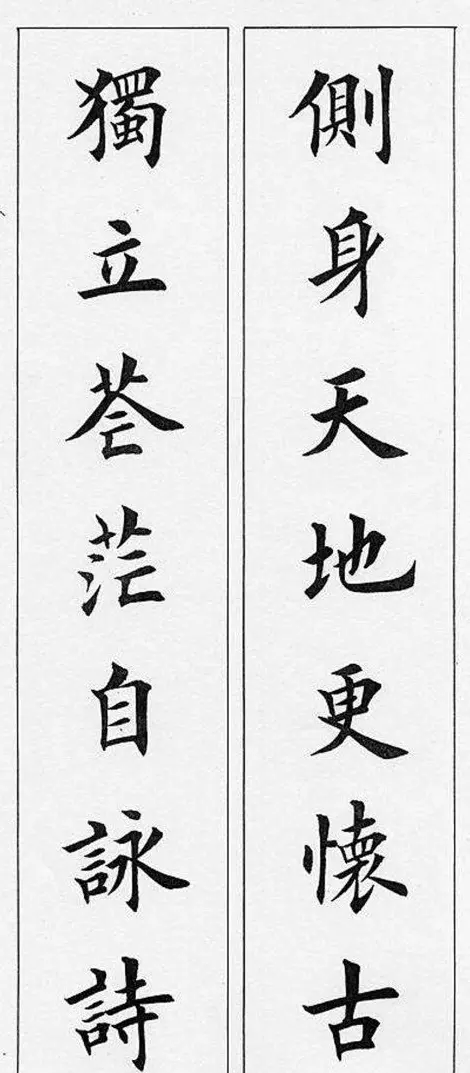 側身天地更懷古
獨立蒼茫自詠詩